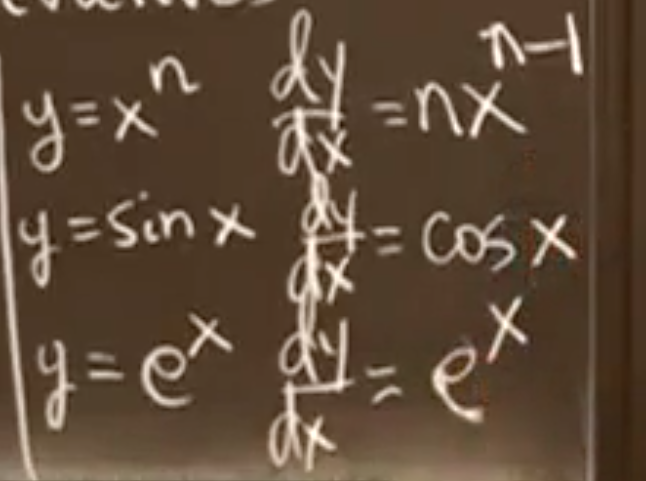 y = xⁿ dy/dx = nxⁿ⁻¹
y = sin x dy/dx = cos x
y = eˣ dy/dx = eˣ